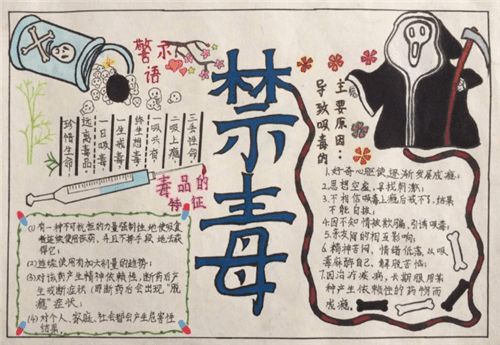 警示语
禁毒
珍惜生命，
远离毒品。
一日吸毒，
一生戒毒，
终生想毒。
一吸共害，
二吸上瘾，
三丢性命。
毒品的
特征
(1)有一种不可抗拒的力量强制性地使吸食
者连续使用该药，并且不择手段地去获
得它；
(2)连续使用有加大剂量的趋势；
(3)对该药产生精神依赖性，断药后产
生戒断症状（即断药后会出现“脱
瘾”症状）；
(4)对个人、家庭、社会都会产生危害性
结果
导致吸毒的
主要原因：
1.好奇心驱使，逐渐发展成瘾；
2.思想空虚，寻找刺激；
3.不相信吸毒上瘾后戒不了，结果
不能自拔；
4.因不知情被欺骗，引诱吸毒；
5.亲友间的相互影响；
6.精神苦闷，情绪低落，从吸
毒麻醉自己，解脱苦恼；
7.因治疗疾病，长期服用某
种产生依赖性的药物而
成瘾。